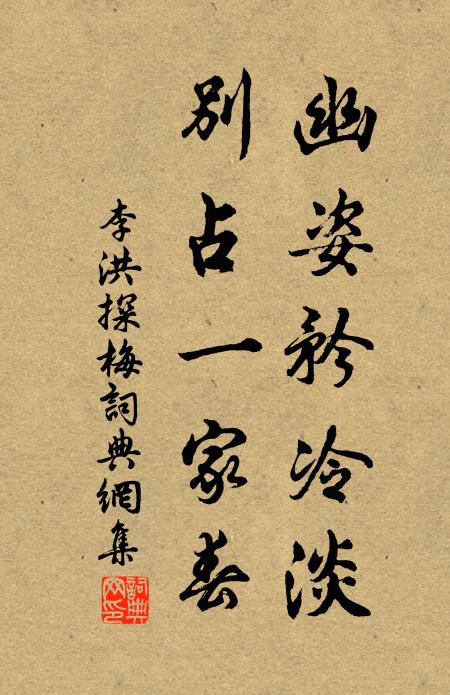 幽姿矜冷淡
別占一家春
李洪探梅詞典網集
詞典網印